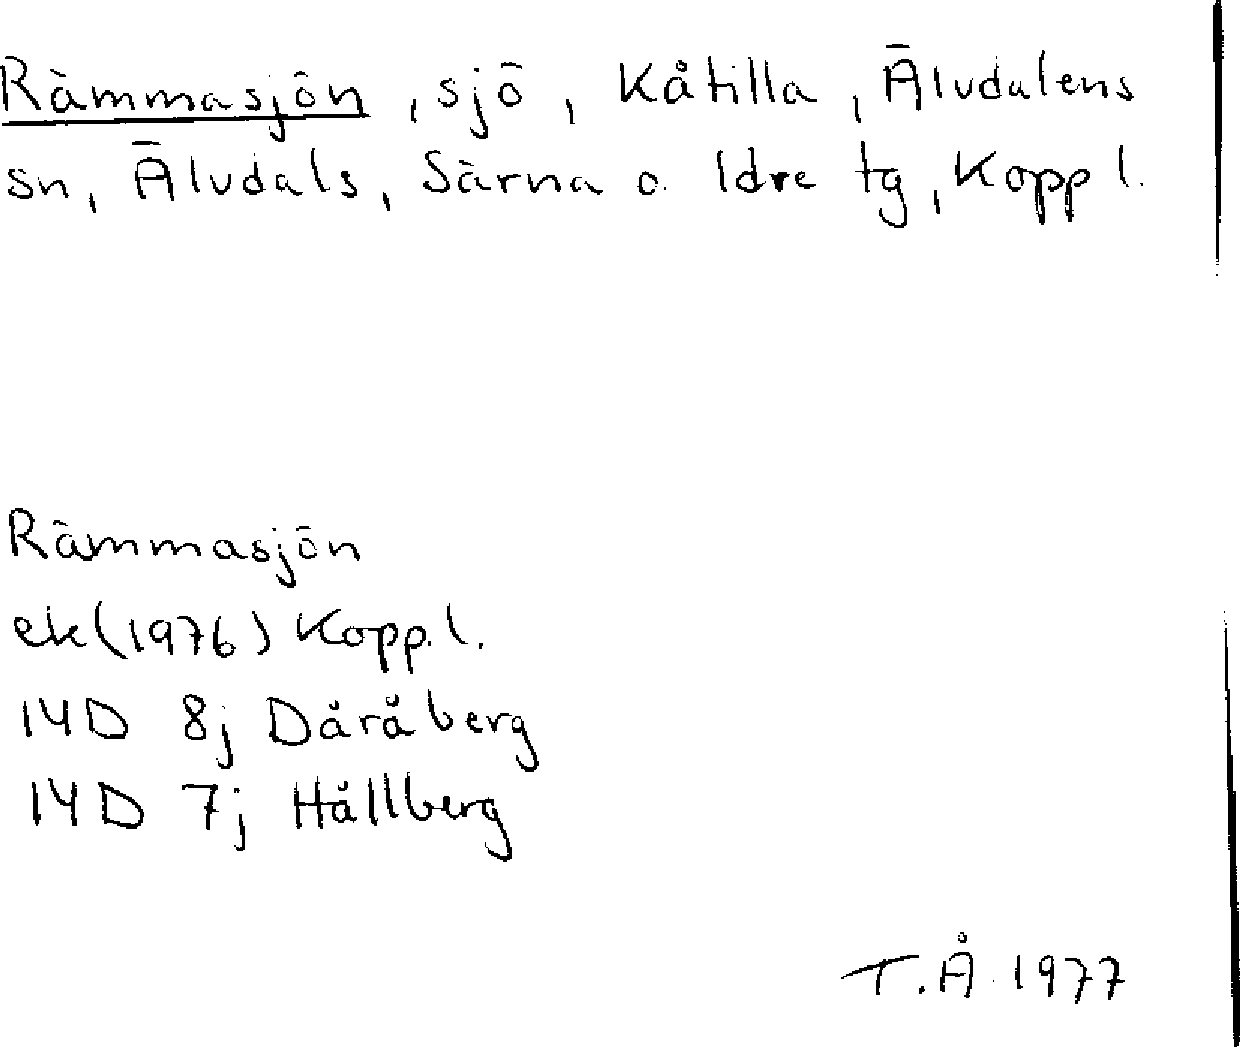 Rämmasjön, sjö, Kåtilla, Älvdalens
sn, Älvdals, Särna o. Idre tg, Kopp l.
Rämmasjön
ek(1976) Kopp. l.
14D 8j Dåråberg
14D 7j Hållberg
T.Å 1977